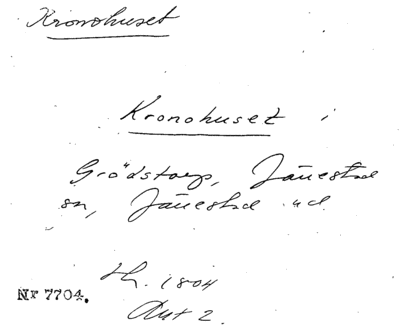 Kronohuset
Kronohuset i
Grödstorp, Jänestad
sn, Jänestad ud
Hh. 1804
Akt 2.
Nr 7704.